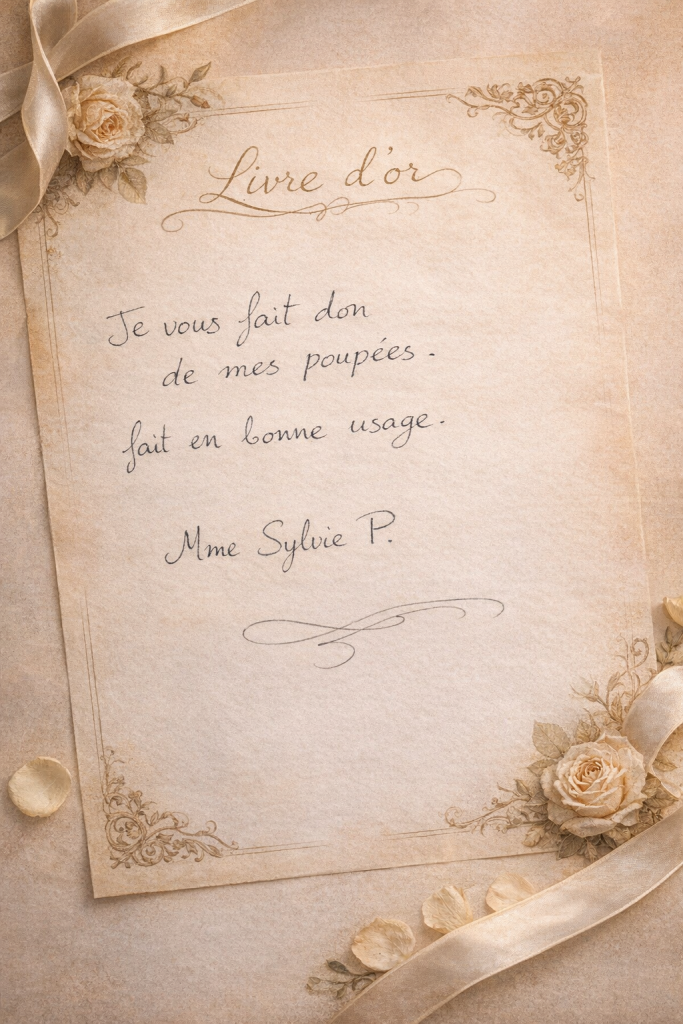 Livre d'or
Je vous fait don
de mes poupées.
fait en bonne usage.
Mme Sylvie P.